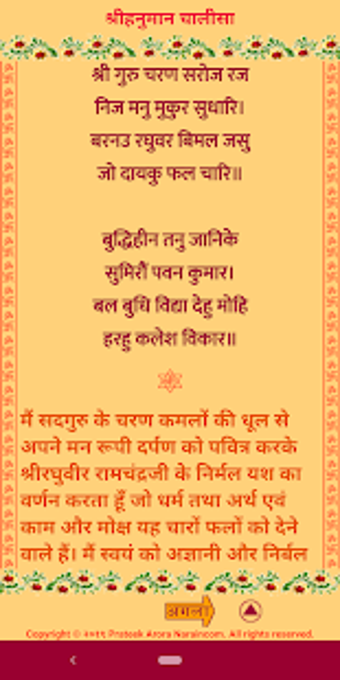 श्रीहनुमान चालीसा
श्री गुरु चरण सरोज रज
निज मनु मुकुर सुधारि।
बरनउ रघुवर बिमल जसु
जो दायकु फल चारि॥
बुद्धिहीन तनु जानिके
सुमिरौं पवन कुमार।
बल बुधि विद्या देहु मोहि
हरहु कलेश विकार॥
मैं सदगुरु के चरण कमलों की धूल से
अपने मन रूपी दर्पण को पवित्र करके
श्रीरघुवीर रामचंद्रजी के निर्मल यश का
वर्णन करता हूँ जो धर्म तथा अर्थ एवं
काम और मोक्ष यह चारों फलों को देने
वाले हैं। मैं स्वयं को अज्ञानी और निर्बल
अगला
Copyright © २०१९ Prateek Arora Naraincom. All rights reserved.